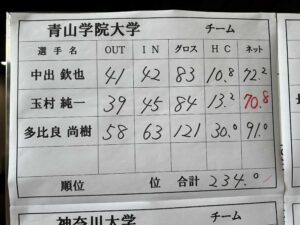 青山学院大学 チーム
選手名 OUT IN グロス HC ネット
中出 欽也 41 42 83 10.8 72.2
玉村 純一 39 45 84 13.2 70.8
多比良 尚樹 58 63 121 30.0 91.0
順位 位 合計 234.0
神奈川大学 チーム